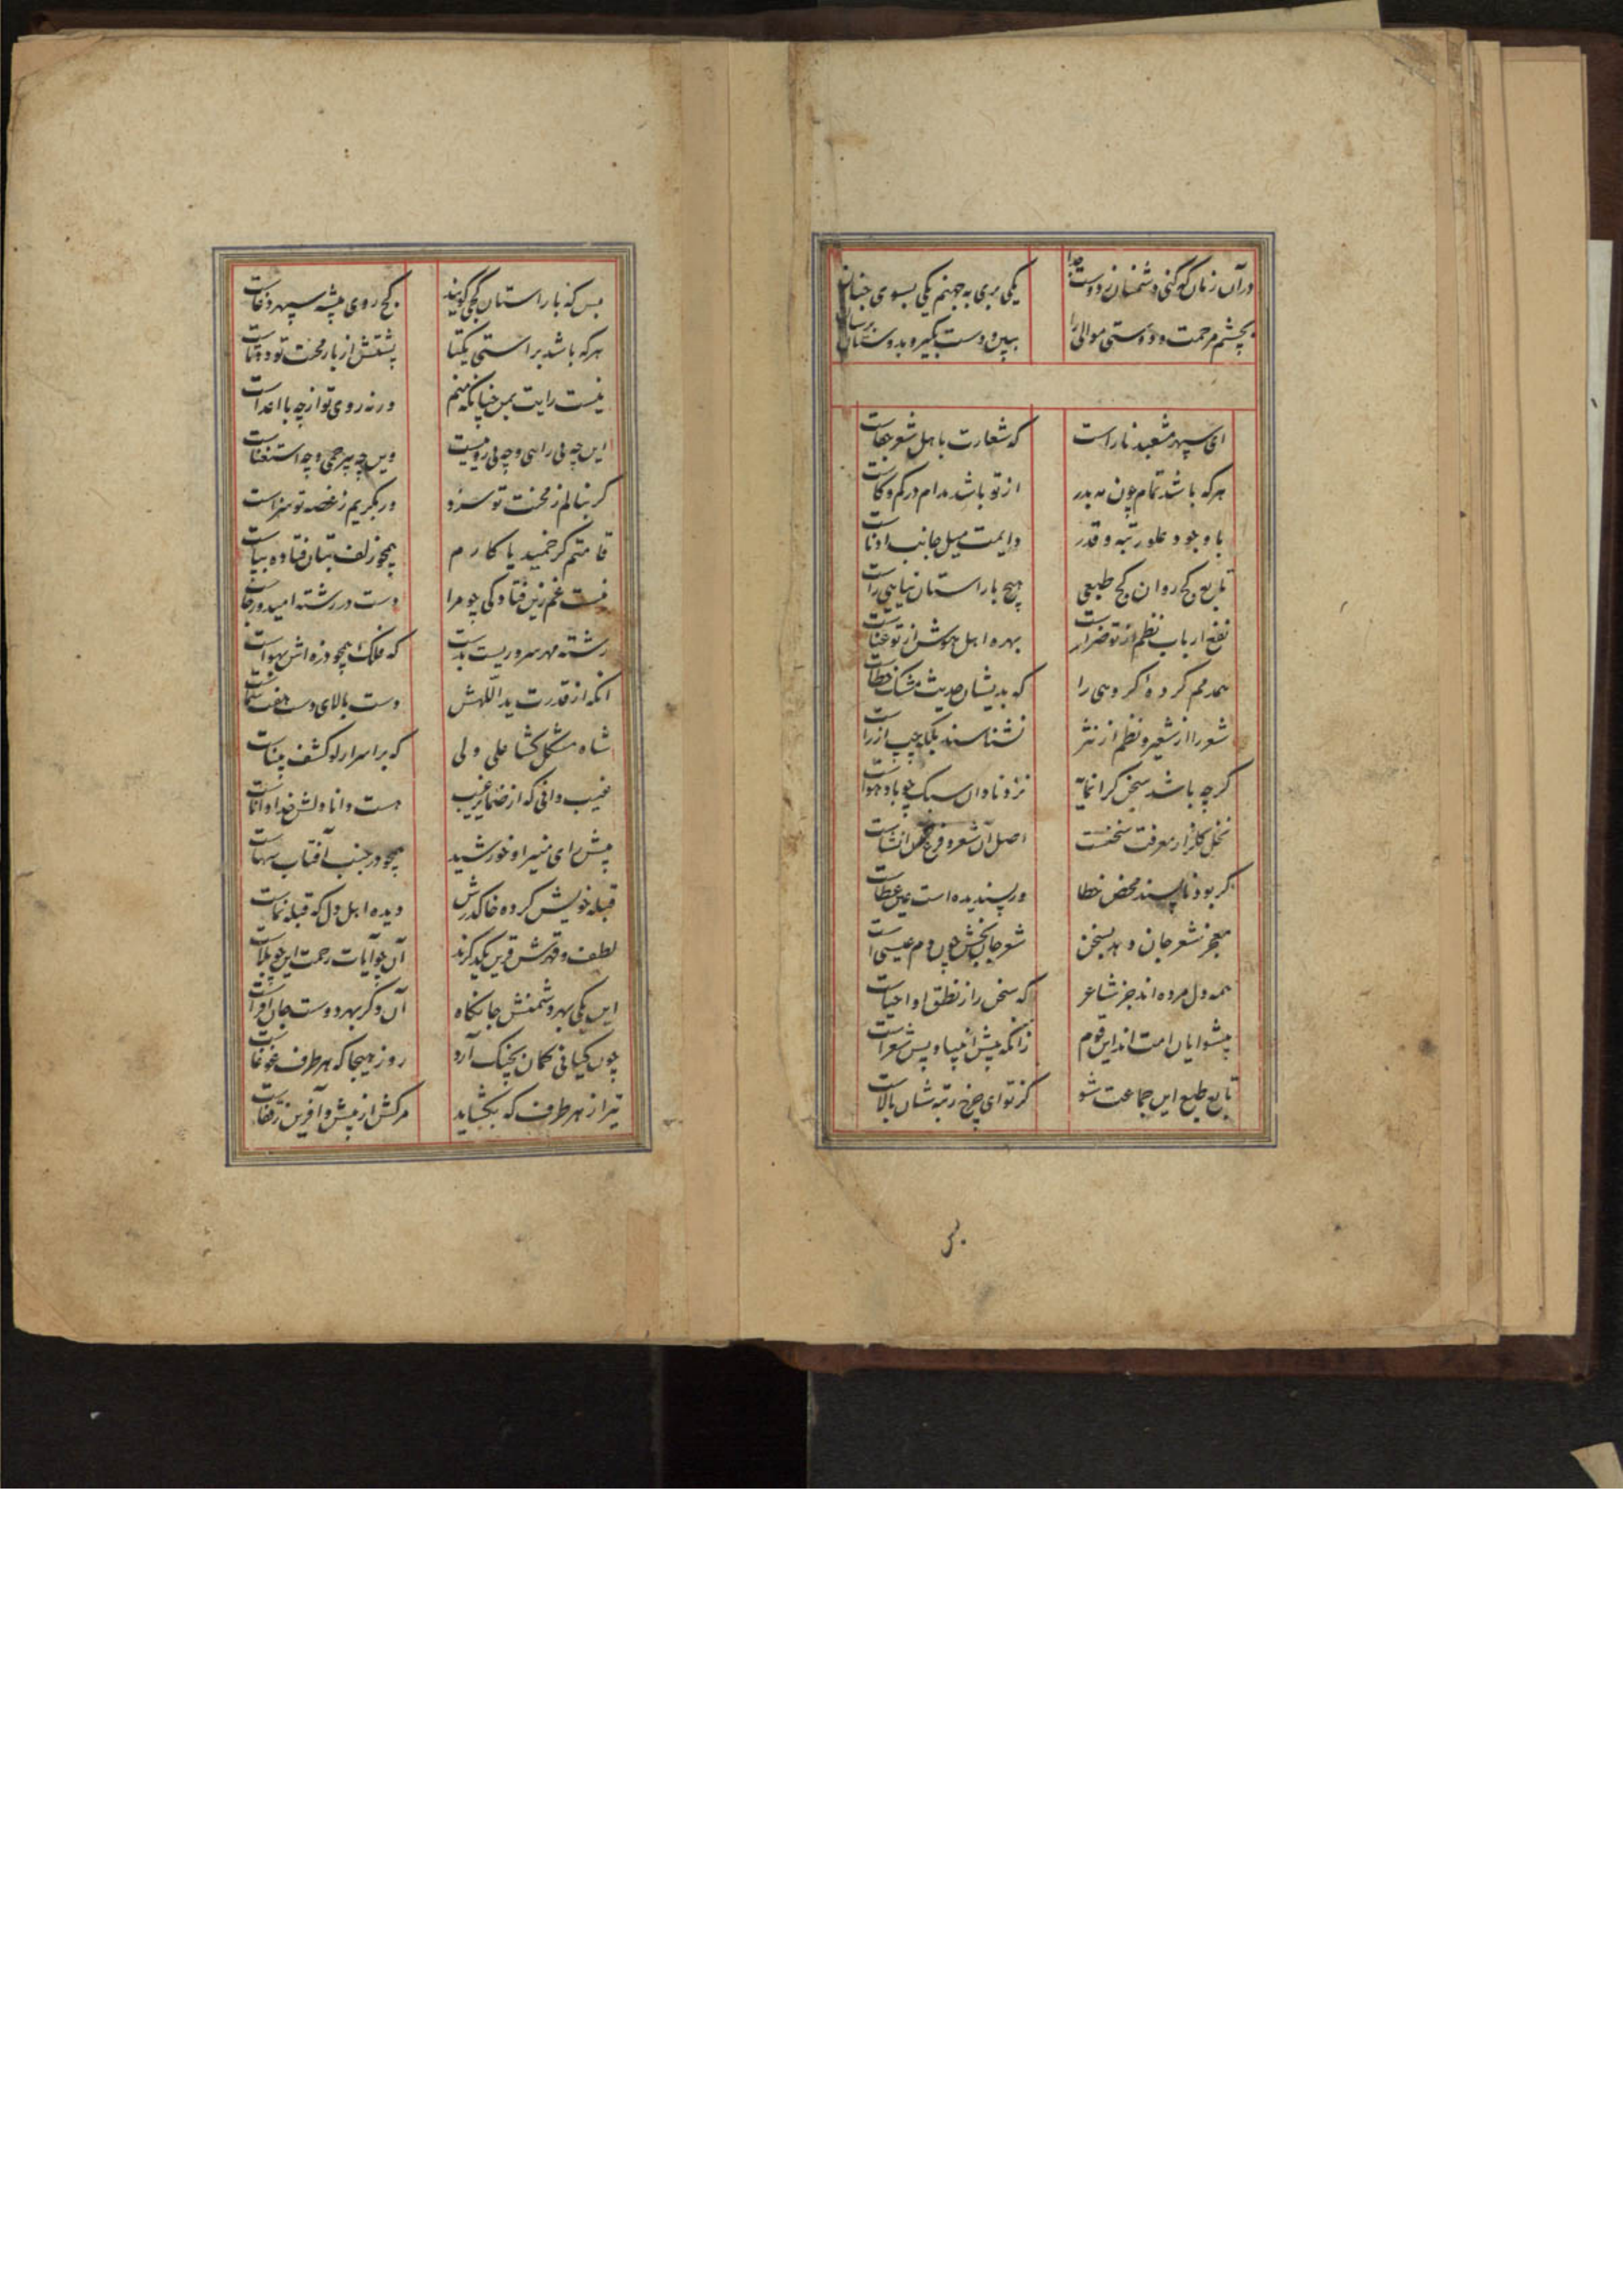 در آن زمان که کنی دشمنان ز دوست جدا یکی بری به جهنم یکی بسوی جنان
بچشم مرحمت و دوستی موالی را ببین و دست بگیر و بدوستان برسان
ای سپهر مشعبد ناراست که شعارت باهل شعر جفاست
هرکه باشد تمام چون مه بدر از تو باشد مدام در کم و کاست
با وجود علو رتبه و قدر دایمت میل جانب ادناست
تابع کج روان کج طبعی هیچ با راستان نیایی راست
نفع ارباب نظم از تو ضرر است بهره اهل هوش از تو عناست
همدمم کرده اکروهی را که بدیشان حدیث مشک خطاست
شعر را از شعیر و نظم از نثر نشناسند بلکه چپ از راست
کرچه باشد سخن کرانمایه نزد نادان سبک چو باد هواست
نخل کلزار معرفت سخنست اصل آن شعر و فرع انشاست
کر بود ناپسند محض خطا ور پسندیده است عین عطاست
معجز شعر جان دهد بسخن شعر جان بخش چون دم عیسی است
همه دل مرده اند جز شاعر که سخن را ز نطق او احیاست
پیشوایان امت اند این قوم زانکه پیش انبیا و پس شعراست
تابع طبع این جماعت شو کز تو ای چرخ رتبه شان بالاست
بس که با راستان کج کویند کج روی پیشه سپهر دغاست
هرکه باشد براستی یکتا پشتش از بار محنت تو دوتاست
نیست رایت بمن چنانکه منم ورنه روی تو از چه با اعداست
این چه بی راهی و چه بی روییست وین چه بیرحمی و چه استغناست
کر بنالم ز محنت تو سزد ور بگریم ز غصه تو سزاست
قامتم کر خمید یا کارم همچو زلف بتان فتاده بپاست
نیست غم زین فتادکی چو مرا دست در رشته امید و رجاست
رشته مهر سروریست بدست که فلک همچو ذره اش بهواست
انکه از قدرت ید اللهش دست بالای دست هفت سماست
شاه مشکل کشا علی ولی که بر اسرار لو کشف بیناست
غیب دانی که از ضمایر غیب هست دانا دلش خدا داناست
پیش رای منیر او خورشید همچو در جنب آفتاب سهاست
قبله خویش کرده خاک درش دیده اهل دل که قبله نماست
لطف و قهرش قرین یکدکرند آن چو آیات رحمت این چو بلاست
این یکی بهر دشمنش جانکاه آن دکر بهر دوست جان افزاست
چون کیانی کمان بچنک آرد روز هیجا که هر طرف غوغاست
تیر از هر طرف که بکشاید مرکش از پیش و آفرین ز قفاست